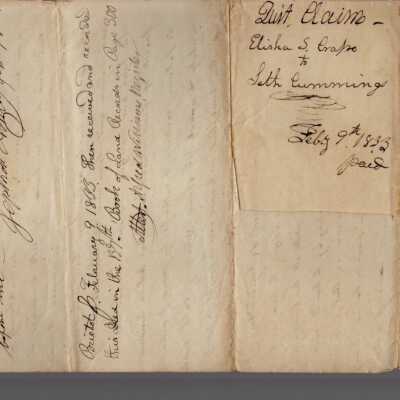 Quit Claim –
Elisha S. Crapo
to
Seth Cumming
Feby 9th 1833
paid
Bristol ss. February 9 1833 then received and recorded
this deed in the 137th Book of Land Records in Page 300
Attest Alfred Williams Regis